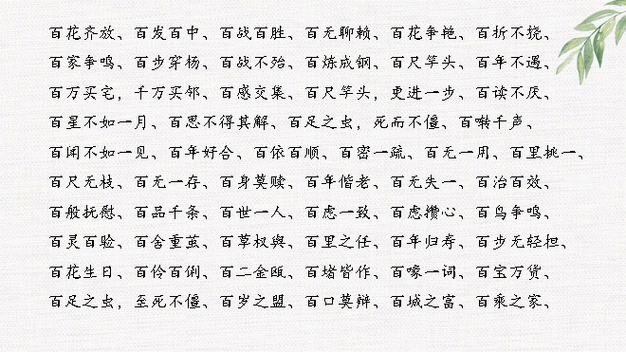 百花齐放、百发百中、百战百胜、百无聊赖、百花争艳、百折不挠、
百家争鸣、百步穿杨、百战不殆、百炼成钢、百尺竿头、百年不遇、
百万买宅，千万买邻、百感交集、百尺竿头，更进一步、百读不厌、
百星不如一月、百思不得其解、百足之虫，死而不僵、百啭千声、
百闻不如一见、百年好合、百依百顺、百密一疏、百无一用、百里挑一、
百尺无枝、百无一存、百身莫赎、百年偕老、百无失一、百治百效、
百般抚慰、百品千条、百世一人、百虑一致、百虑攒心、百鸟争鸣、
百灵百验、百舍重茧、百草权舆、百里之任、百年归寿、百步无轻担、
百花生日、百伶百俐、百二金瓯、百堵皆作、百嚎一词、百宝万货、
百足之虫，至死不僵、百岁之盟、百口莫辩、百城之富、百乘之家、